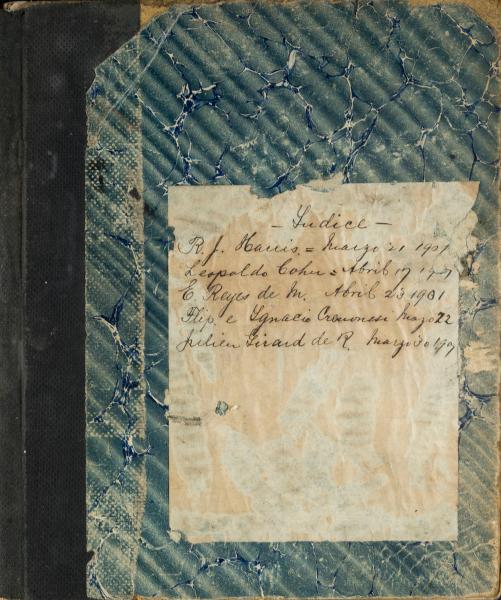 - Indice -
R. J. Harris = Marzo 21 1901
Leopoldo Cohn = Abril 17 1901
E. Reyes de M. Abril 23 1901
Flip. e Ygnacio Mayo 22
Julien Girard de R. Marzo 30 190